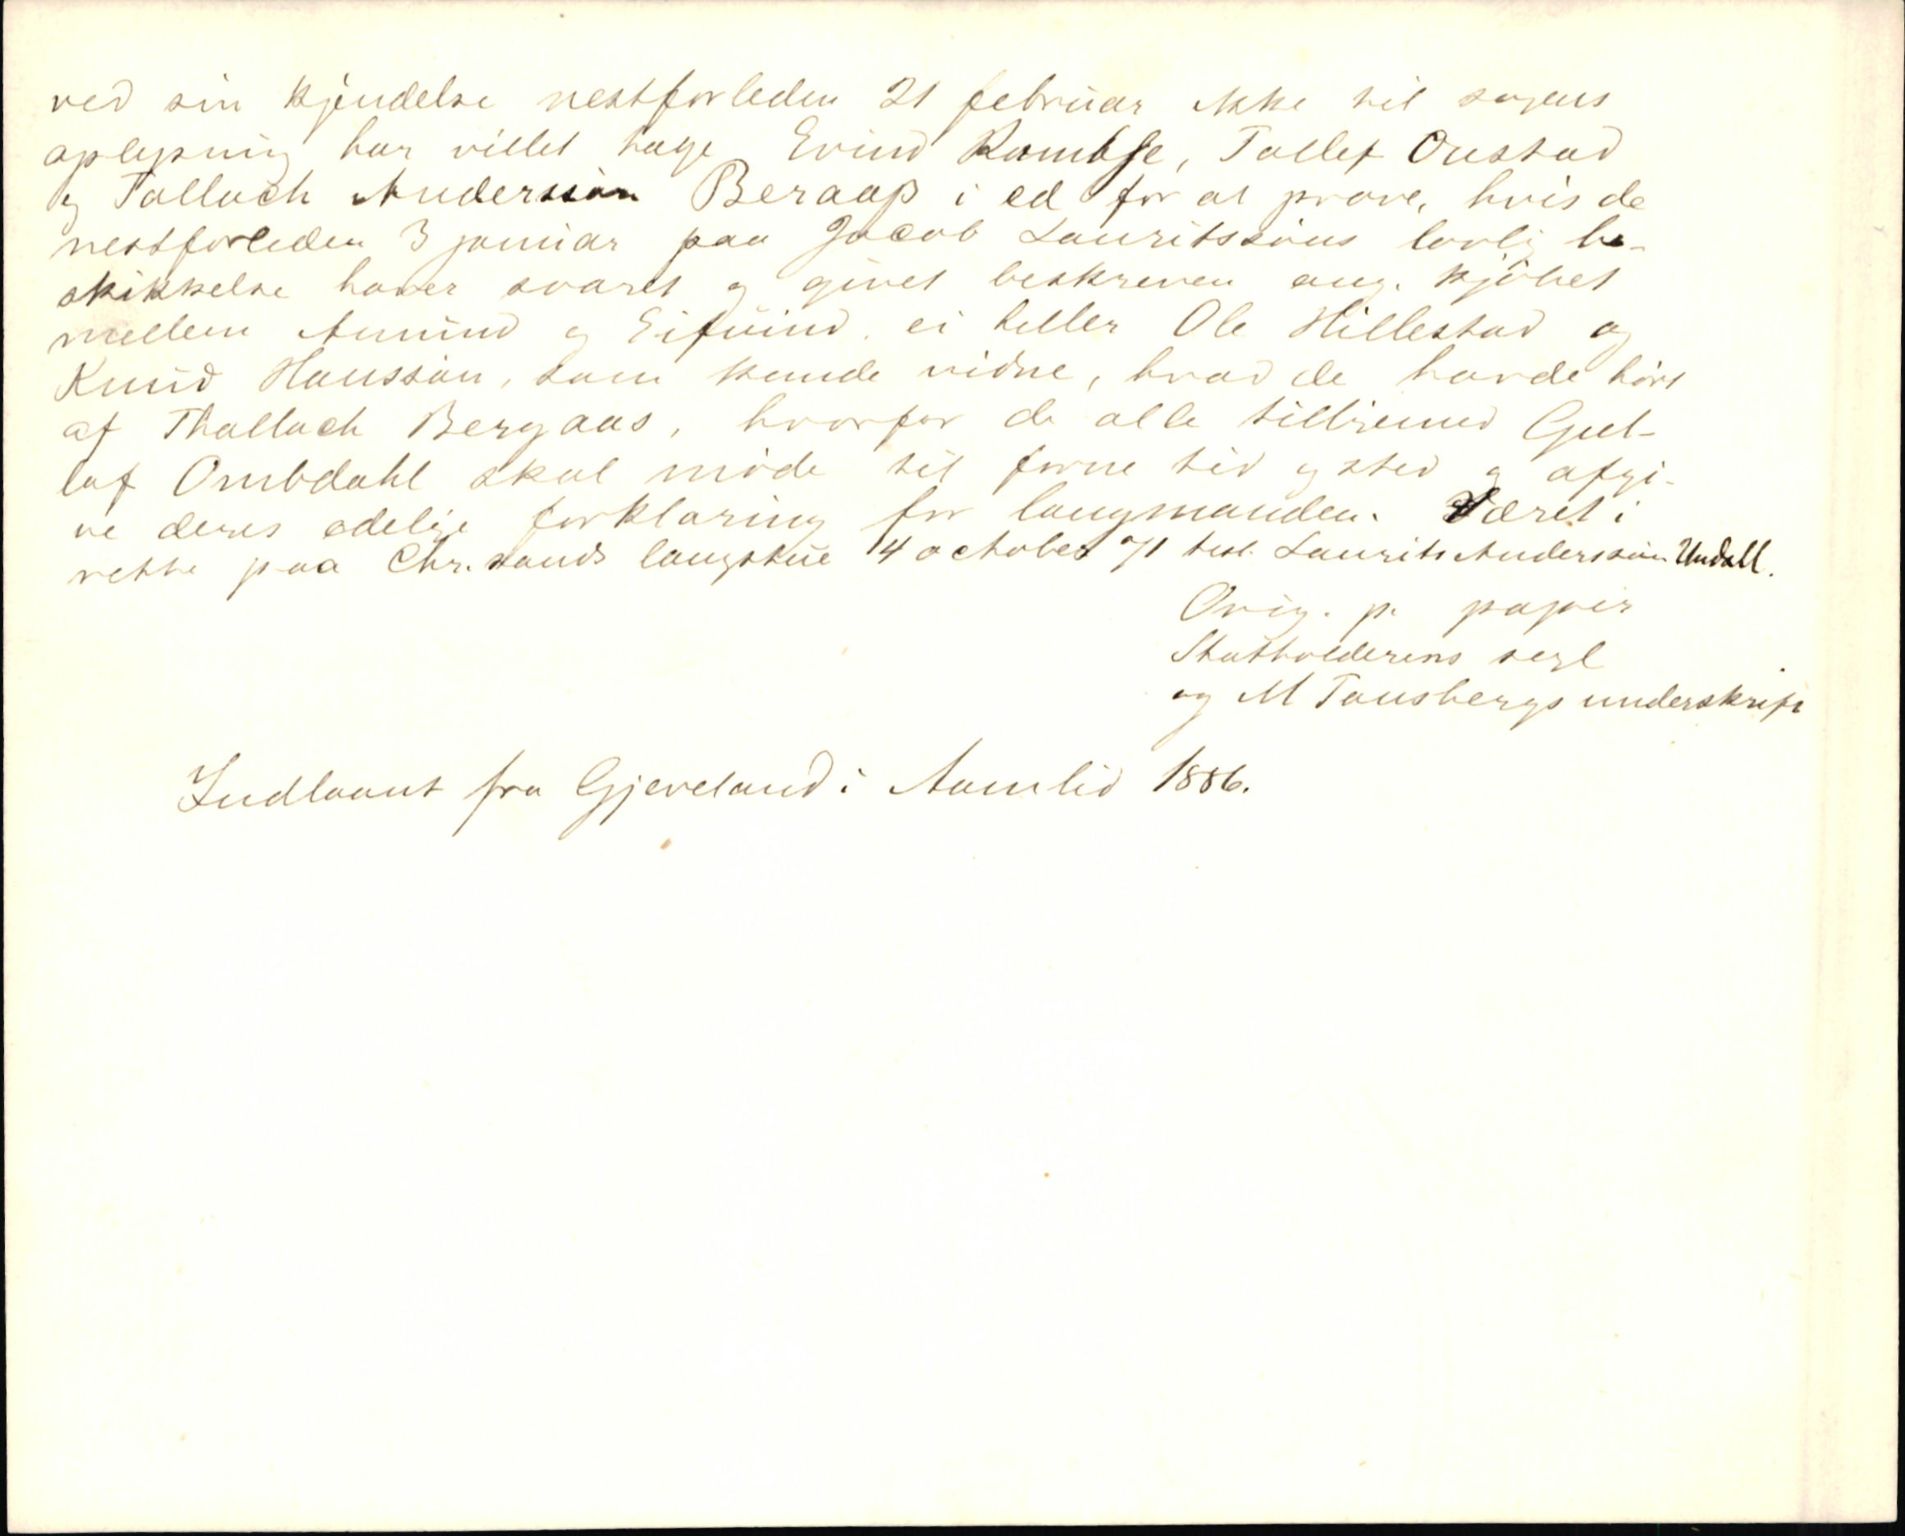 ved sin kjendelse nestforleden 21 februar ikke til sagens
oplysning har villet tage Evind Rambse, Tallef Oustad
og Tallach Anderssøn Beraaß i ed for at prove, hvis de
nestforleden 3 januar paa Jacob Lauritssøns lovlig be-
skikkelse haver svaret og givet beskreven ang. kjøbet
mellem Amund og Eifuind, ei heller Ole Hillestad og
Knud Hanssøn, som kunde vidne, hvad de havde hørt
af Thallach Bergaas, hvorfor de alle tillige med Gul-
laf Ombdahl skal møde til forne tid og sted og afgi-
ve deres edelige forklaring for laugmanden. Været i
rette paa Chr.sands laugstue 4 october 71 test. Laurits Anderssøn Undall.
Orig. p. papir
Statholderens segl
og M Tonsbergs underskrift
Indlaant fra Gjeveland i Aamlid 1886.